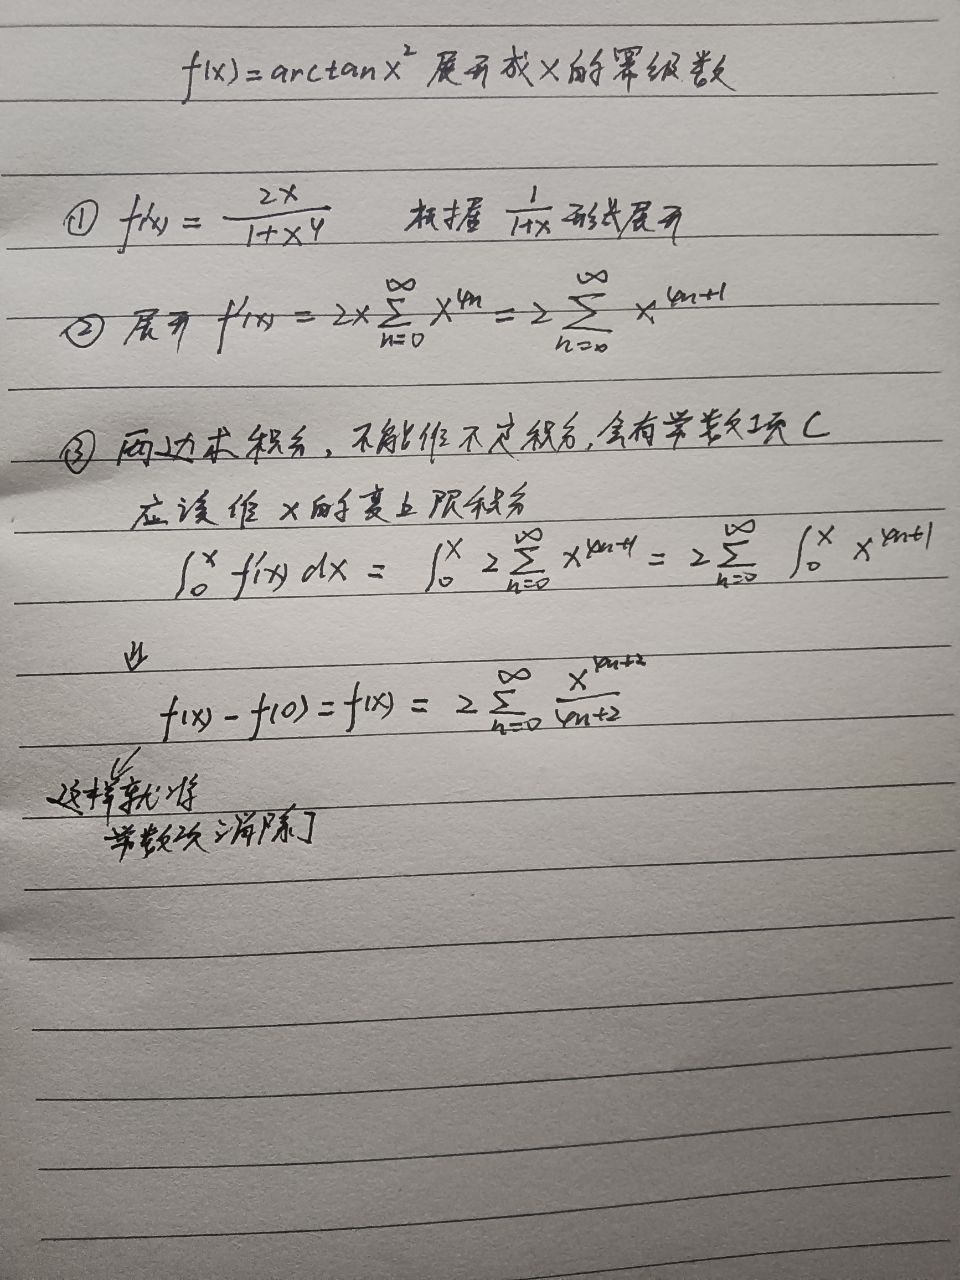 f(x)=arctanx² 展开成x的幂级数
① f'(x) = 2x/(1+x⁴) 根据 1/(1+x) 形式展开
② 展开 f'(x) = 2x∑_{n=0}^{∞} x^{4n} = 2∑_{n=0}^{∞} x^{4n+1}
③ 两边求积分，不能作不定积分，会有常数项C
应该作x的变上限积分
∫₀ˣ f'(x) dx = ∫₀ˣ 2∑_{n=0}^{∞} x^{4n+1} = 2∑_{n=0}^{∞} ∫₀ˣ x^{4n+1}
⇓
f(x) - f(0) = f(x) = 2∑_{n=0}^{∞} x^{4n+2}/(4n+2)
这样就将
常数项消除了